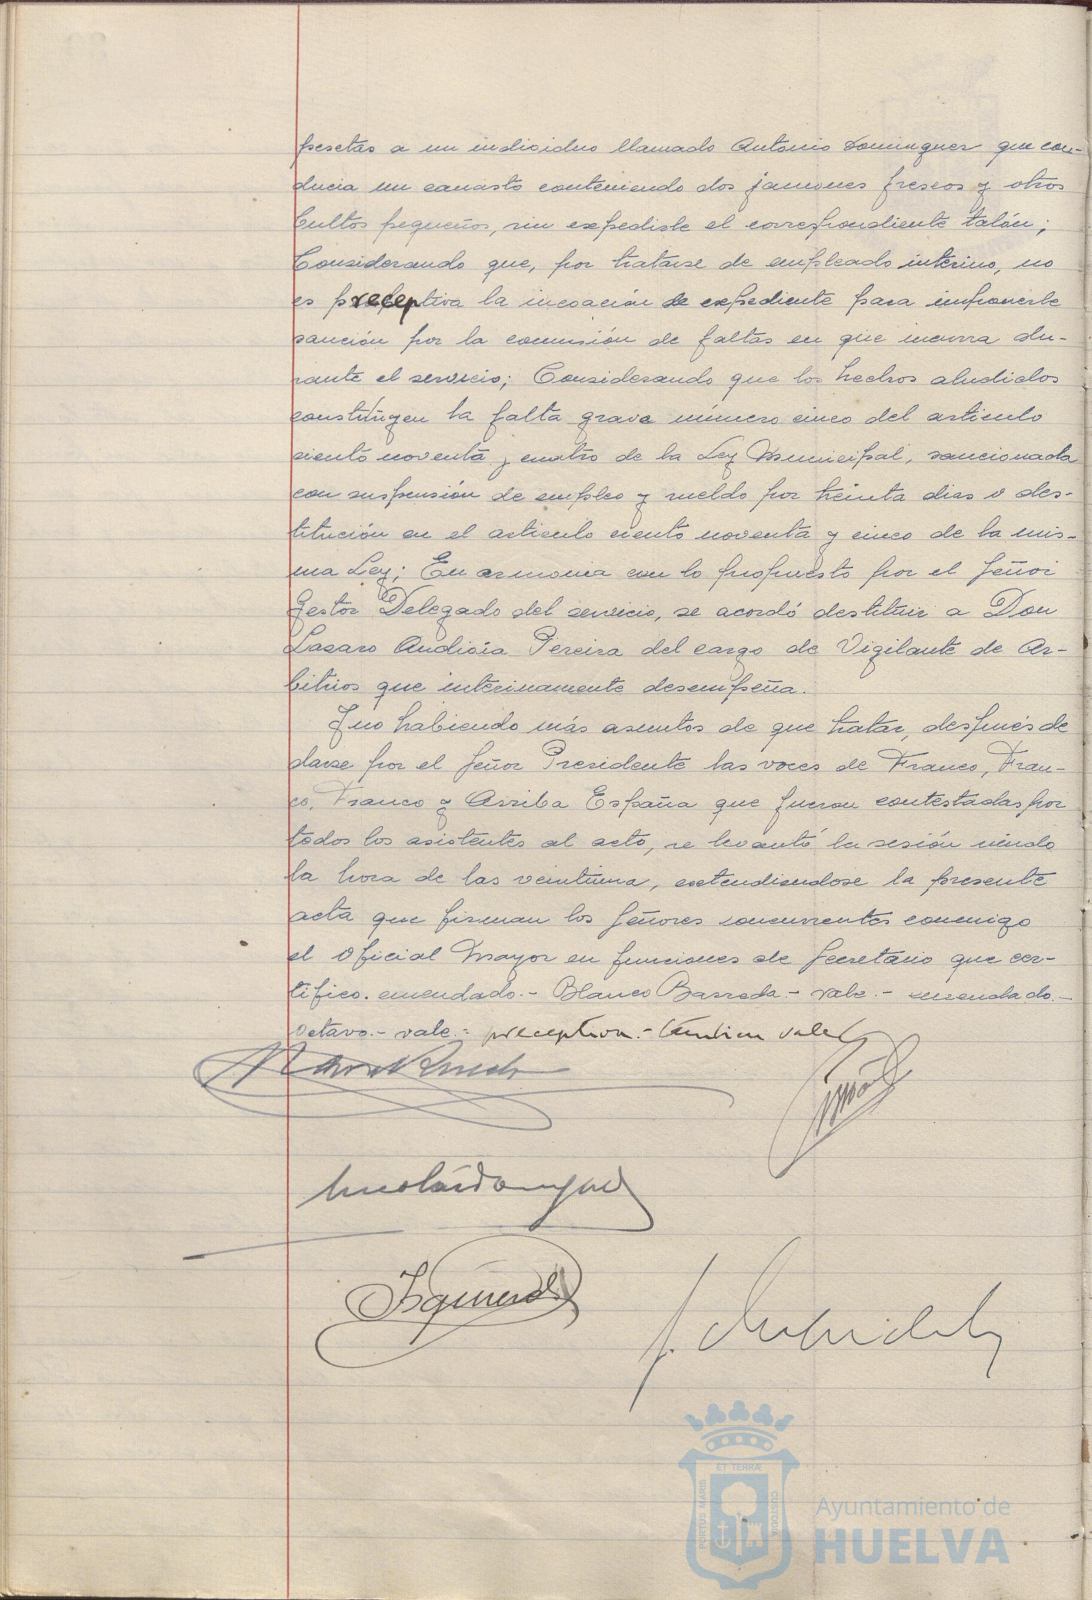 pesetas a un individuo llamado Antonio Dominguez que con-
ducia un canasto conteniendo dos jamones frescos y otros
bultos pequeños, sin expedirle el correspondiente talón;
Considerando que, por tratarse de empleado interino, no
es preceptiva la incoación de expediente para imponerle
sanción por la comisión de faltas en que incurra du-
rante el servicio; Considerando que los hechos aludidos
constituyen la falta grave número cinco del articulo
ciento noventa y cuatro de la Ley Municipal, sancionada
con suspensión de empleo y sueldo por treinta dias o des-
titución en el articulo ciento noventa y cinco de la mis-
ma Ley; En armonia con lo propuesto por el Señor
Gestor Delegado del servicio, se acordó destituir a Don
Lasaro Pereira del cargo de Vigilante de Ar-
bitrios que interinamente desempeña.
Y no habiendo más asuntos de que tratar, después de
darse por el Señor Presidente las voces de Franco, Fran-
co, Franco y Arriba España que fueron contestadas por
todos los asistentes al acto, se levantó la sesión siendo
la hora de las veintiuna, extendiendose la presente
acta que firman los Señores concurrentes conmigo
el Oficial Mayor en funciones de Secretario que cer-
tifico. emendado.- Blanco Barreda - vale.- enmendado.-
octavo.- vale.- preceptiva.- tambien vale
Izquierdo
ET TERRÆ
PORTUS MARIS
CUSTODIA
Ayuntamiento de
HUELVA